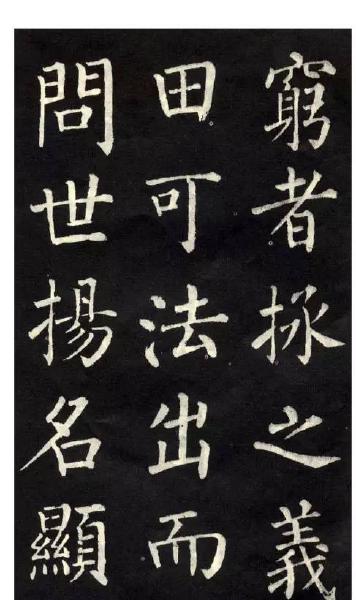 窮者拯之義
田可法出而
問世揚名顯